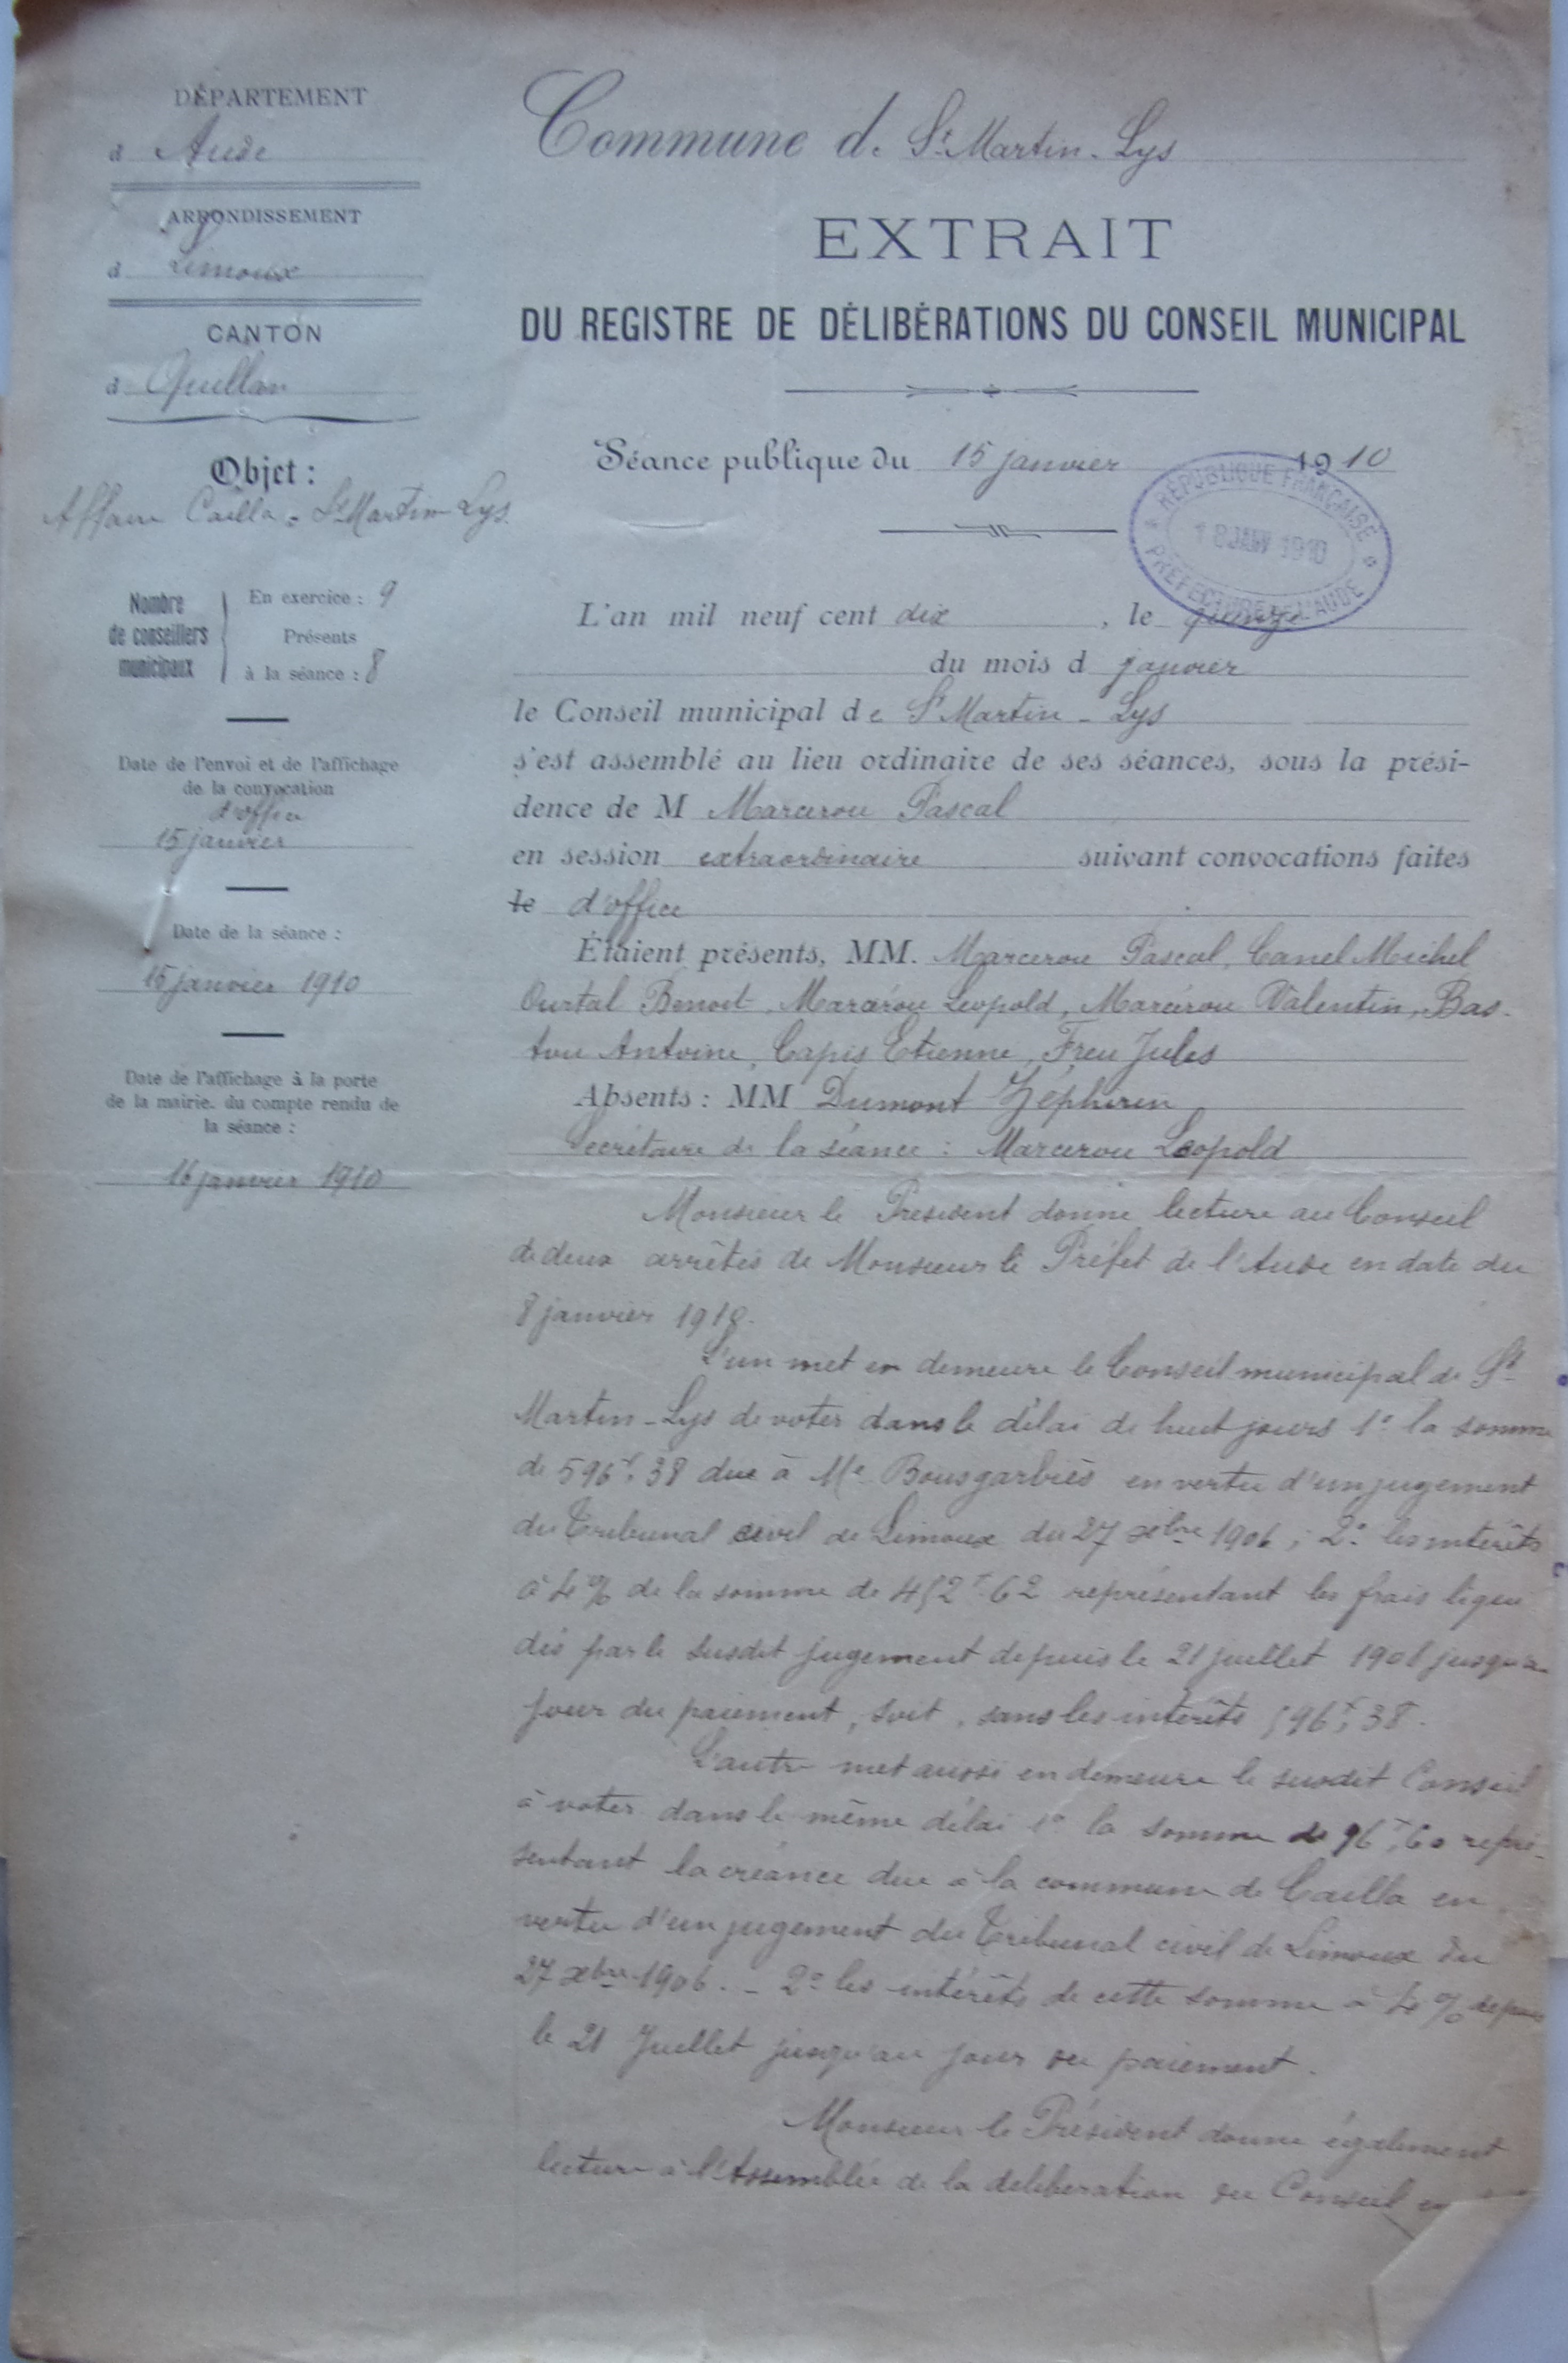 DÉPARTEMENT
d Aude
ARRONDISSEMENT
d Limoux
CANTON
d Quillan
Objet :
Affaire Cailla - St Martin-Lys.
Nombre
de conseillers
municipaux
En exercice : 9
Présents
à la séance : 8
Date de l'envoi et de l'affichage
de la convocation
d'office
15 janvier
Date de la séance :
15 janvier 1910
Date de l'affichage à la porte
de la mairie, du compte rendu de
la séance :
16 janvier 1910
Commune de St Martin-Lys
EXTRAIT
DU REGISTRE DE DÉLIBÉRATIONS DU CONSEIL MUNICIPAL
Séance publique du 15 janvier 1910
RÉPUBLIQUE FRANÇAISE
18 JANV 1910
PRÉFECTURE DE L'AUDE
L'an mil neuf cent dix , le quinze
du mois d janvier
le Conseil municipal de St Martin-Lys
s'est assemblé au lieu ordinaire de ses séances, sous la prési-
dence de M Marcerou Pascal
en session extraordinaire suivant convocations faites
le d'office
Étaient présents, MM. Marcerou Pascal, Canel Michel
Ourtal Benoit, Marcérou Leopold, Marcérou Valentin, Bas-
tou Antoine, Capis Etienne, Freu Jules
Absents : MM Dumont Zéphirin
Secrétaire de la séance : Marcerou Leopold
Monsieur le Président donne lecture au Conseil
de deux arrêtés de Monsieur le Préfet de l'Aude en date du
8 janvier 1910.
L'un met en demeure le Conseil municipal de St
Martin-Lys de voter dans le délai de huit jours 1° la somme
de 596f,38 due à Me Bousgarbiès en vertu d'un jugement
du Tribunal civil de Limoux du 27 xbre 1906 ; 2° les intérêts
à 4% de la somme de 452f.62 représentant les frais liqui
dés par le susdit jugement depuis le 21 juillet 1906 jusqu'au
jour du paiement, soit, sans les intérêts 596f,38.
L'autre met aussi en demeure le susdit Conseil
à voter dans le même délai 1° la somme de 96f,60 repré-
sentant la créance due à la commune de Cailla en
vertu d'un jugement du Tribunal civil de Limoux du
27 xbre 1906. - 2° les intérêts de cette somme à 4% depuis
le 21 Juillet jusqu'au jour du paiement.
Monsieur le Président donne également
lecture à l'Assemblée de la deliberation du Conseil